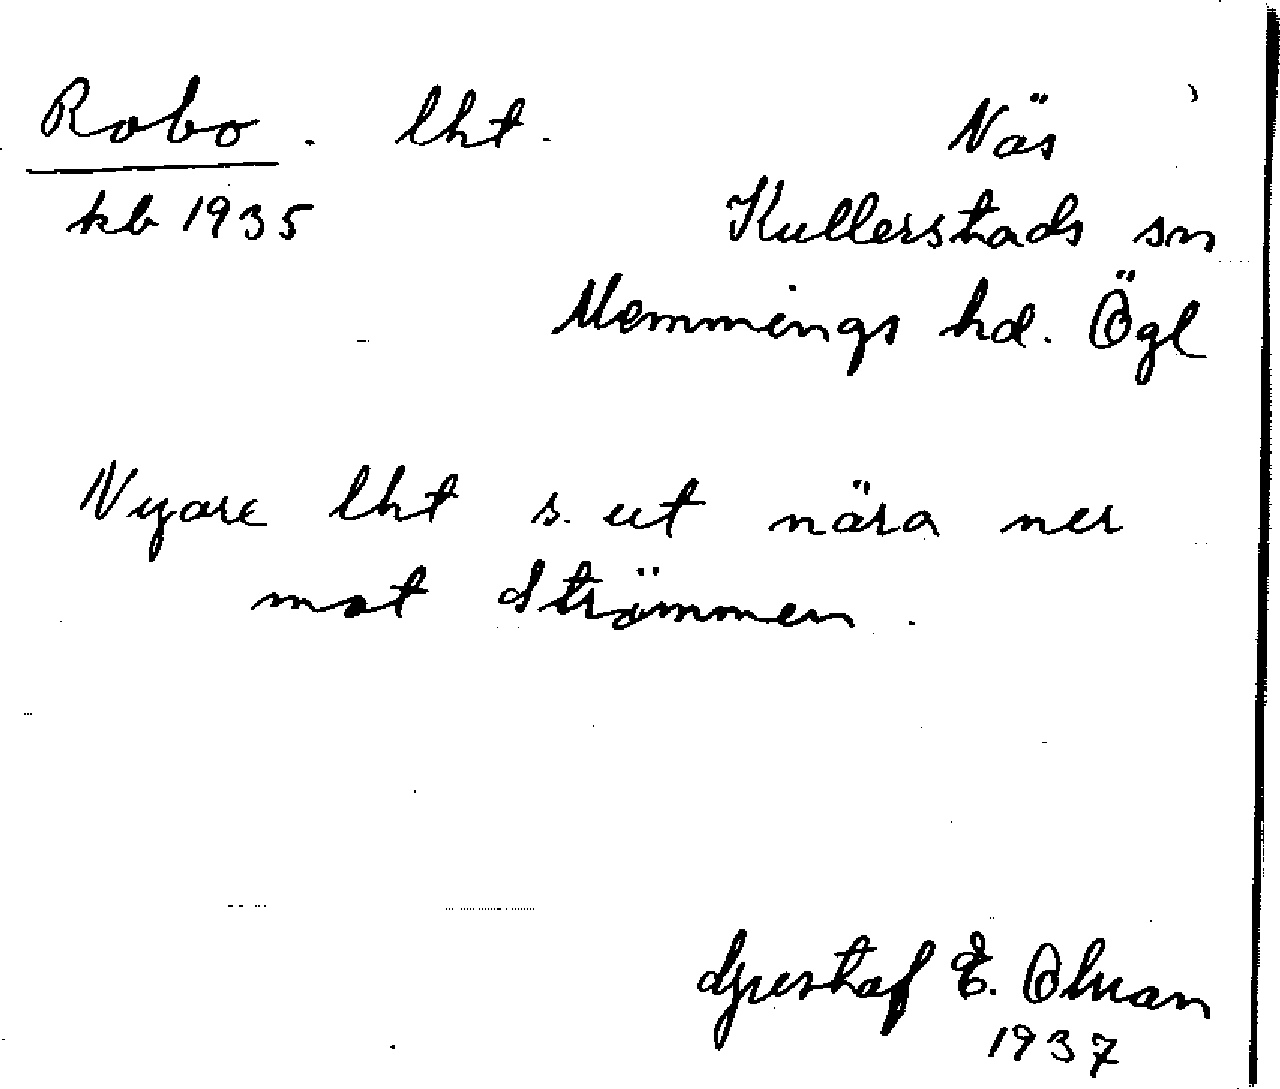 Robo. lht. Näs
kb 1935 Kullerstads sn
Memmings hd. Ögl
Nyare lht s. ut nära ner
mot Strömmen.
Gustaf E. Olson
1937